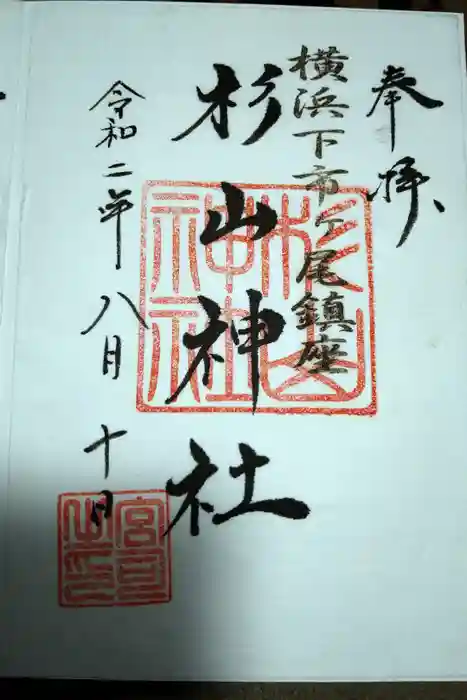 奉拝
横浜下市ケ尾鎮座
杉山神社
杉山
神社
令和二年八月十日
宮司
之印